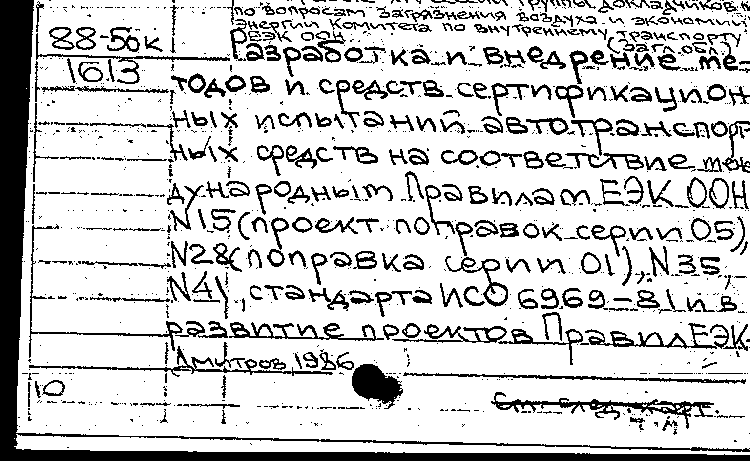 группы докладчиков
по вопросам загрязнения воздуха и экономии
Энергии Комитета по внутреннему транспорту
88-50к ЕЭК ООН (загл.обл.)
1613 Разработка и внедрение ме-
тодов и средств сертификацион
ных испытаний автотранспорт
ных средств на соответствие меж
дународным Правилам ЕЭК ООН
N15 (проект поправок серии 05),
N28 (поправка серии 01), N35,
N41, стандарта ИСО 6969-81 и в
развитие проектов Правил ЕЭК-
Дмитров, 1986
10 См. след. карт.